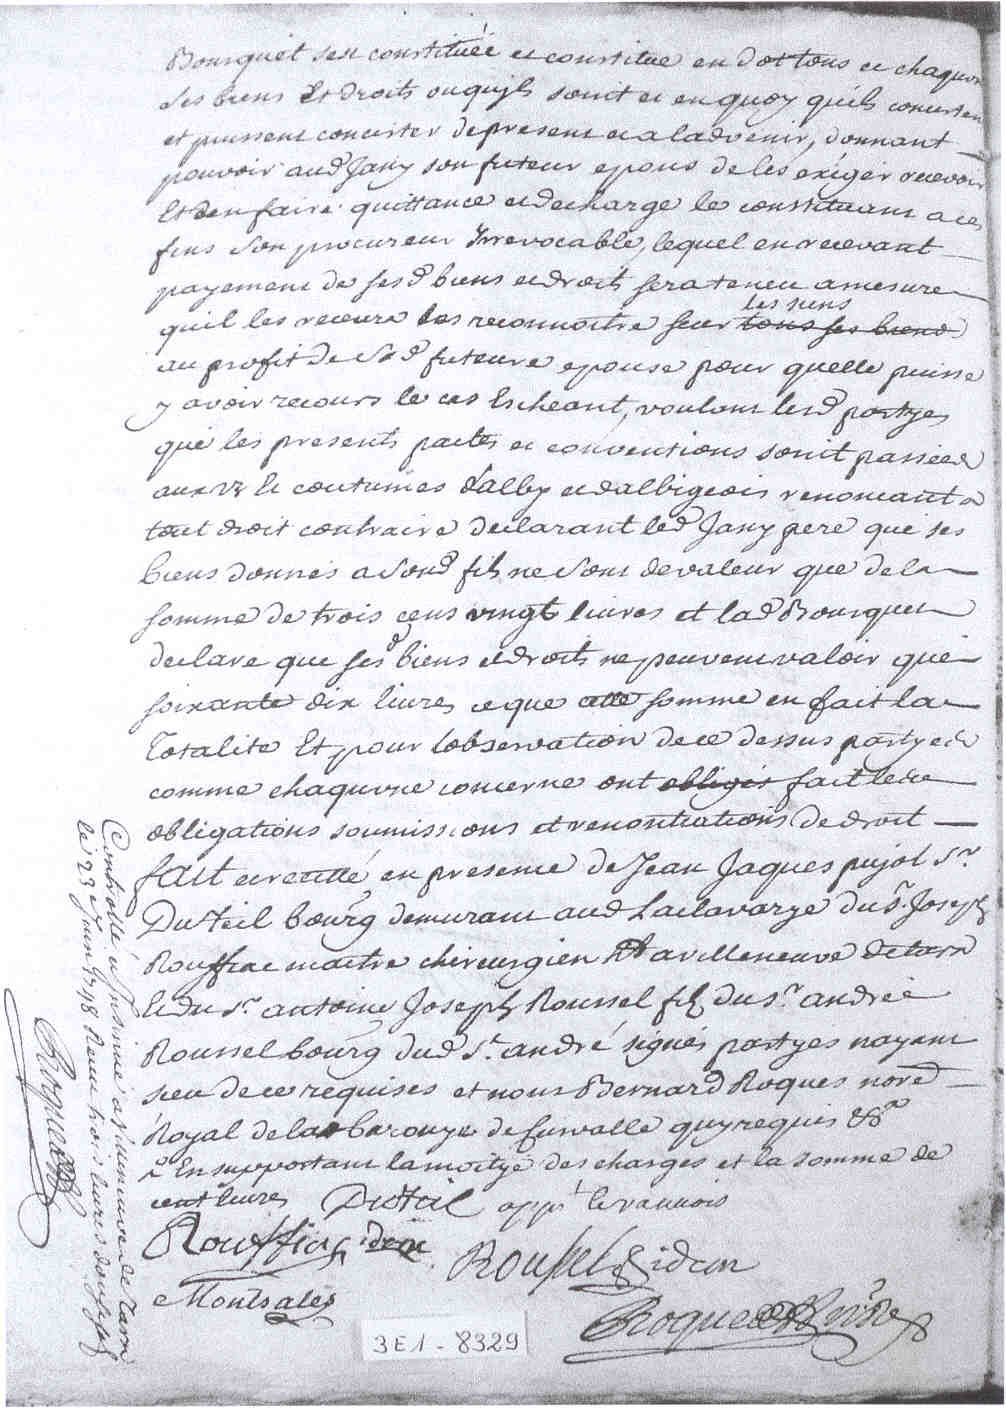 Bourguet sest constituée et constitue en dot tous et chaquuns
ses biens Et droits ou quyls soint et en quoy quils concistent
et puissent concister de present et a ladvenir, donnant
pouvoir aud Jany son futeur epous de les exiger recevoir
Et den faire quittance et decharge le constituant a ces
fins son procureur Irrevocable, lequel en recevant
payement de sesd biens et droits sera teneu a mesure
quil les receura les reconnoitre sur tous ses biens
les siens
au profit de sad futeure epouse pour quelle puisse
y avoir recours le cas Escheant, voulant lesd partyes
que les presents pactes et conventions soint passées
aux us Et coutumes dalby et dalbigeois renoncant a
tout droit contraire declarant led Jany pere que ses
biens donnés a sond fils ne sont de valeur que de la
somme de trois cens vingt livres et lad Bourguet
declare que sesd biens et droits ne peuvent valoir que
soixante dix livres ce que somme en fait la
Totalite Et pour lobservation de ce dessus partyes
comme chaquune concerne ont obligés fait les
obligations soumissions et renontiations de droit
fait et recitté en presence de Jean Jaques pujol sr
Duteil bourg demurant aud La clavarye du sr. Joseph
Rouffiac maitre chirurgien a villeneuve de tarn
Et du sr antoine Joseph Roussel fils du sr andré
Roussel bourg dud St andré signés partyes nayant
sceu de ce requises et nous Bernard Roques nore
Royal de la baronye de Curvalle quy requis &a
En supportant la moityé des charges et la somme de
cent livres Duteil appé le ranvois
Rouffiac idem Roussel idem
Montsales
Roques Nre
Controllé et Insinué a villeneuve de Tarn
le 23e Juin 1748 Receu trois livres
Roques
3 E 1 - 8329